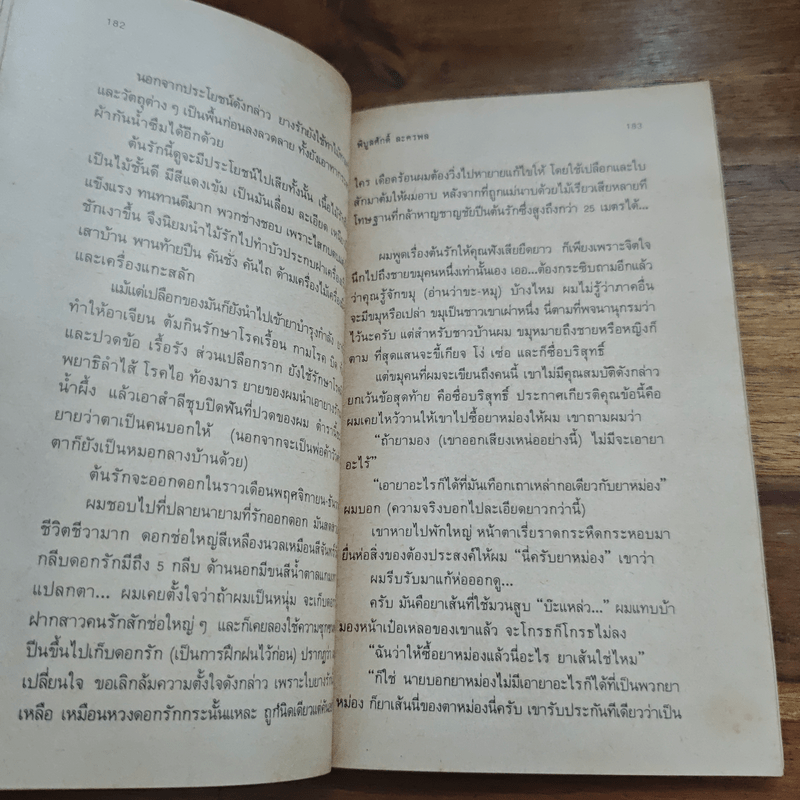 182
นอกจากประโยชน์ดังกล่าว ยางรักยังใช้ทาไม้
และวัตถุต่าง ๆ เป็นพื้นก่อนลงลวดลาย ทั้งยังเอาทา
ผ้ากันน้ำซึมได้อีกด้วย
ต้นรักนี้ดูจะมีประโยชน์ไปเสียทั้งนั้น เนื้อไม้
เป็นไม้ชั้นดี มีสีแดงเข้ม เป็นมันเลื่อม ละเอียด
แข็งแรง ทนทานดีมาก พวกช่างชอบ เพราะไสกบ
ชักเงาขึ้น จึงนิยมนำไม้รักไปทำบัวประกบฝาเครื่อง
เสาบ้าน พานท้ายปืน คันชั่ง คันไถ ด้ามเครื่องมือ
และเครื่องแกะสลัก
แม้แต่เปลือกของมันก็ยังนำไปเข้ายาบำรุงกำลัง
ทำให้อาเจียน ต้มกินรักษาโรคเรื้อน กามโรค บิด
และปวดข้อ เรื้อรัง ส่วนเปลือกราก ยังใช้รักษาโรค
พยาธิลำไส้ โรคไอ ท้องมาร ยายของผมนำเอายางรัก
น้ำผึ้ง แล้วเอาสำลีชุบปิดฟันที่ปวดของผม ตำรา
ยายว่าตาเป็นคนบอกให้ (นอกจากจะเป็นพ่อค้า
ตาก็ยังเป็นหมอกลางบ้านด้วย)
ต้นรักจะออกดอกในราวเดือนพฤศจิกายน-ธันวา
ผมชอบไปที่ปลายนายามที่รักออกดอก มันสด
ชีวิตชีวามาก ดอกช่อใหญ่สีเหลืองนวลเหมือนสีจันทร์
กลีบดอกรักมีถึง 5 กลีบ ด้านนอกมีขนสีน้ำตาลแกม
แปลกตา... ผมเคยตั้งใจว่าถ้าผมเป็นหนุ่ม จะเก็บดอก
ฝากสาวคนรักสักช่อใหญ่ ๆ และก็เคยลองใช้ความซุกซน
ปีนขึ้นไปเก็บดอกรัก (เป็นการฝึกฝนไว้ก่อน) ปรากฏว่า
เปลี่ยนใจ ขอเลิกล้มความตั้งใจดังกล่าว เพราะใบยางรัก
เหลือ เหมือนหวงดอกรักกระนั้นแหละ ถูกนิดเดียวแต่คัน
พิบูลศักดิ์ ละครพล 183
ใคร เดือดร้อนผมต้องวิ่งไปหายายแก้ไขให้ โดยใช้เปลือกและใบ
สักมาต้มให้ผมอาบ หลังจากที่ถูกแม่นาบด้วยไม้เรียวเสียหลายที
โทษฐานที่กล้าหาญชาญชัยปีนต้นรักซึ่งสูงถึงกว่า 25 เมตรได้...
ผมพูดเรื่องต้นรักให้คุณฟังเสียยืดยาว ก็เพียงเพราะจิตใจ
นึกไปถึงชายขมุคนหนึ่งเท่านั้นเอง เออ...ต้องกระซิบถามอีกแล้ว
ว่าคุณรู้จักขมุ (อ่านว่าขะ-หมุ) บ้างไหม ผมไม่รู้ว่าภาคอื่น
จะมีขมุหรือเปล่า ขมุเป็นชาวเขาเผ่าหนึ่ง นี่ตามที่พจนานุกรมว่า
ไว้นะครับ แต่สำหรับชาวบ้านผม ขมุหมายถึงชายหรือหญิงก็
ตาม ที่สุดแสนจะขี้เกียจ โง่ เซ่อ และก็ซื่อบริสุทธิ์
แต่ขมุคนที่ผมจะเขียนถึงคนนี้ เขาไม่มีคุณสมบัติดังกล่าว
ยกเว้นข้อสุดท้าย คือซื่อบริสุทธิ์ ประกาศเกียรติคุณข้อนี้คือ
ผมเคยไหว้วานให้เขาไปซื้อยาหม่องให้ผม เขาถามผมว่า
“ถ้ายามอง (เขาออกเสียงเหน่ออย่างนี้) ไม่มีจะเอายา
อะไร”
“เอายาอะไรก็ได้ที่มันเทือกเถาเหล่ากอเดียวกับยาหม่อง”
ผมบอก (ความจริงบอกไปละเอียดยาวกว่านี้)
เขาหายไปพักใหญ่ หน้าตาเรี่ยราดกระหืดกระหอบมา
ยื่นห่อสิ่งของต้องประสงค์ให้ผม “นี่ครับยาหม่อง” เขาว่า
ผมรีบรับมาแก้ห่อออกดู...
ครับ มันคือยาเส้นที่ใช้มวนสูบ “บ๊ะแหล่ว...” ผมแทบบ้า
มองหน้าเป๋อเหลอของเขาแล้ว จะโกรธก็โกรธไม่ลง
“ฉันว่าให้ซื้อยาหม่องแล้วนี่อะไร ยาเส้นใช่ไหม”
“ก็ใช่ นายบอกยาหม่องไม่มีเอายาอะไรก็ได้ที่เป็นพวกยา
หม่อง ก็ยาเส้นนี่ของตาหม่องนี่ครับ เขารับประกันทีเดียวว่าเป็น